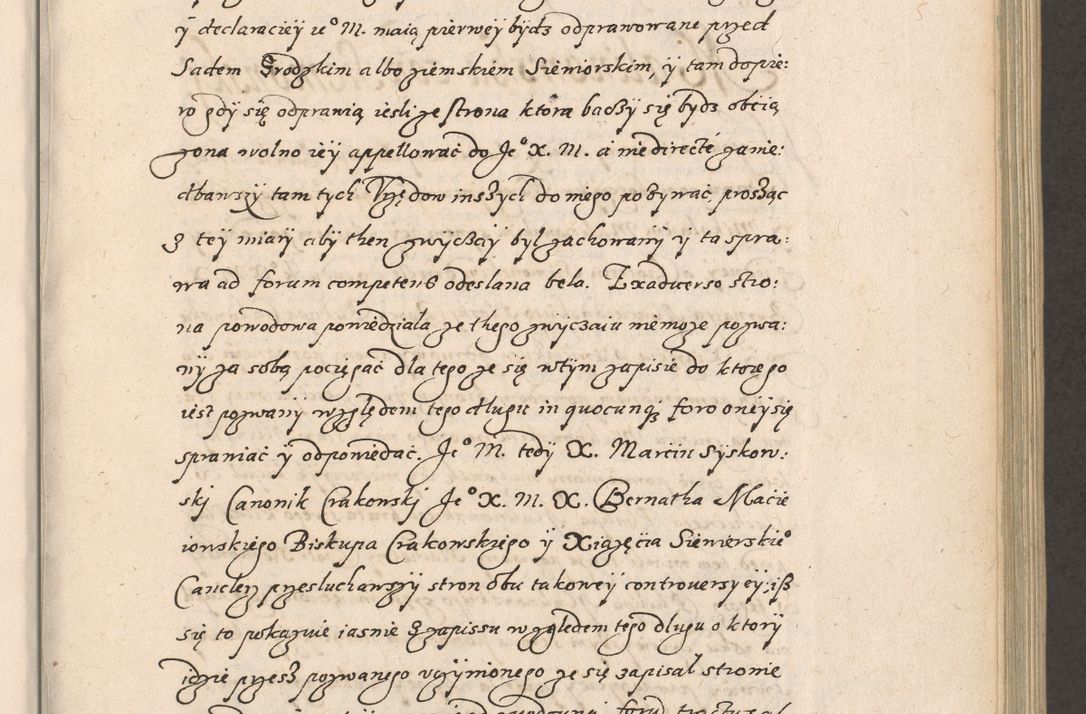 ÿ declaraciëÿ ie° M. maią pierweÿ bÿdz odprawowane przed
Sadem Grodzkim albo ziemskiem Siewiorskim, ÿ tam dopie:
ro gdÿ się odprawią iesli ze strona ktora baczÿ się bÿdz obcią
zona wolno ieÿ appellowac do Je° X. M. a nie directe zanie:
dbawszÿ tam tÿch Vrzędow inszÿch do niego pozÿwac, prosząc
z teÿ miarÿ abÿ then zwÿczaÿ bÿl zachowanÿ ÿ ta spra:
wa ad forum competens odeslana bela. Exaduerso stro:
na powodowa powiedziala ze thego zwÿczaiu nie moze pozwa:
nÿ za sobą pocięgac dla tego ze się wtÿm zapisie do ktorego
iest pozwanÿ względem tego dlugu in quocunq foro oneÿ się
sprawiac ÿ odpowiedac. Je° M. tedÿ X. Marcin Sÿskow:
skj Canonik Crakowskj Je° X. M. X. Bernatha Macie
iowskiego Biskupa Crakowskiego ÿ Xiązęcia Siewierskie°
Canclerz przesluchawszÿ stron obu takoweÿ controversÿeÿ, isz
się to pokazuie iasnie z zapissu względem tego dlugu o ktorÿ
idzie przesz pozwanego vczÿnionego ze się zapisal stronie